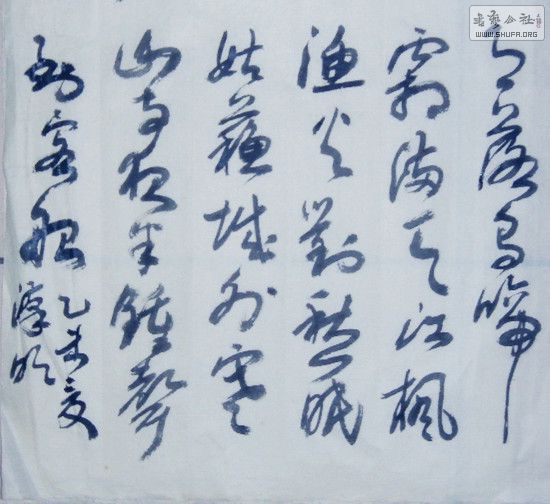 月落烏啼
霜滿天江楓
渔火對愁眠
姑蘇城外寒
山寺夜半鍾聲
到客船
乙未夏
書藝公社
WWW.SHUFA.ORG